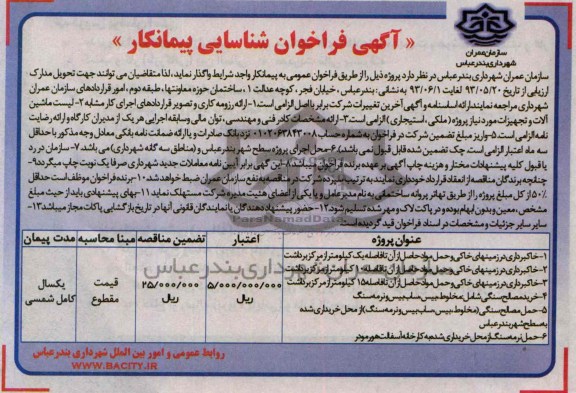 « آگهی فراخوان شناسایی پیمانکار »
سازمان عمران
شهرداری بندرعباس
سازمان عمران شهرداری بندرعباس در نظر دارد پروژه ذیل را از طریق فراخوان عمومی به پیمانکار واجد شرایط واگذار نماید، لذا متقاضیان می توانند جهت تحویل مدارک
ارزیابی از تاریخ ۹۳/۰۵/۲۰ لغایت ۹۳/۰۶/۱ به نشانی: بندرعباس، خیابان فجر، کوچه عدالت ۱، ساختمان حوزه معاونتها، طبقه دوم، امور قراردادهای سازمان عمران
شهرداری مراجعه نمایند. ارائه اساسنامه و آگهی آخرین تغییرات شرکت برابر با اصل الزامی است ۱- ارائه رزومه کاری و تصویر قراردادهای اجرای کار مشابه ۲- لیست ماشین
آلات و تجهیزات مورد نیاز پروژه (ملکی، استیجاری) الزامی است ۳- ارائه مشخصات کادر فنی و مهندسی، توان مالی و سابقه اجرایی هر یک از مدیران کارگاه و ارائه رضایت
نامه الزامی است ۵- واریز مبلغ تضمین شرکت در فراخوان به شماره حساب ۰۱۰۲۰۶۳۸۴۳۰۰۸ نزد بانک صادرات و یا ارائه ضمانت نامه بانکی معادل وجه مذکور با حداقل
سه ماه اعتبار الزامی است. چک تضمین شده قابل قبول نمی باشد) ۶- محل اجرای پروژه سطح شهر بندرعباس و (مناطق سه گانه شهرداری) می باشد ۷- سازمان در رد
یا قبول کلیه پیشنهادات مختار و هزینه چاپ آگهی بر عهده برنده فراخوان میباشد ۸- این آگهی برابر آیین نامه معاملات جدید شهرداری صرفا یک نوبت چاپ میگردد ۹-
چنانچه برندگان مناقصه از انعقاد قرارداد خودداری نمایند به ترتیب سپرده شرکت در مناقصه به نفع سازمان عمران ضبط خواهد شد ۱۰- برنده فراخوان موظف است حداقل
۵۰٪ از کل مبلغ پروژه را از طریق تهاتر پروانه ساختمانی به نام مدیر عامل و یا یکی از اعضای هیئت مدیره شرکت مستهلک نماید ۱۱- بهای پیشنهادی باید از حیث مبلغ
مشخص، معین و بدون ابهام بوده و در پاکت لاک و مهر شده تسلیم شود ۱۲- حضور پیشنهاد دهندگان یا نمایندگان قانونی آنها در تاریخ بازگشایی پاکات مجاز میباشد ۱۳-
سایر سایر جزئیات و مشخصات در اسناد فراخوان قید گردیده است.
عنوان پروژه
اعتبار
تضمین مناقصه
مبنا محاسبه
مدت پیمان
۱- خاکبرداری در زمینهای خاکی و حمل مواد حاصل از آن تا فاصله یک کیلومتر از مرکز برداشت
۲- خاکبرداری در زمینهای خاکی و حمل مواد حاصل از آن تا فاصله ۱۰ کیلومتر از مرکز برداشت
۳- خاکبرداری در زمینهای خاکی و حمل مواد حاصل از آن تا فاصله ۱۵ کیلومتر از مرکز برداشت
۴- خرید مصالح سنگی شامل: مخلوط، بیس، ساب بیس و نرمه سنگ
۵- حمل مصالح سنگی، (مخلوط، بیس، ساب بیس و نرمه سنگ) از محل خریداری شده
به سطح شهر بندرعباس
۶- حمل نرمه سنگ از محل خریداری شده به کارخانه آسفالت هورمودر
۵/۰۰۰/۰۰۰/۰۰۰
ریال
۲۵/۰۰۰/۰۰۰
ریال
قیمت
مقطوع
یکسال
کامل شمسی
روابط عمومی و امور بین الملل شهرداری بندرعباس
WWW.BACITY.IR